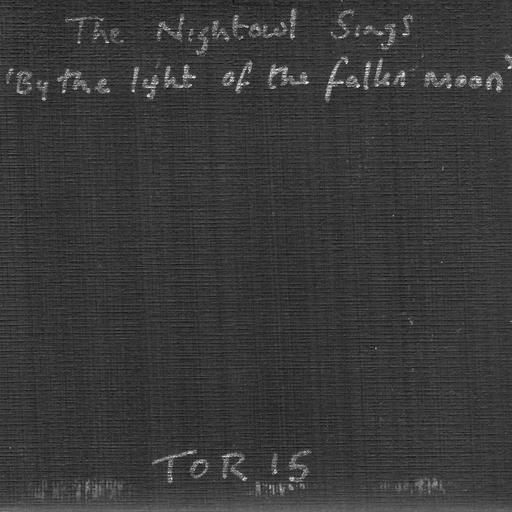 The Nightowl Sings
'By the light of the fallen moon'
TOR 15